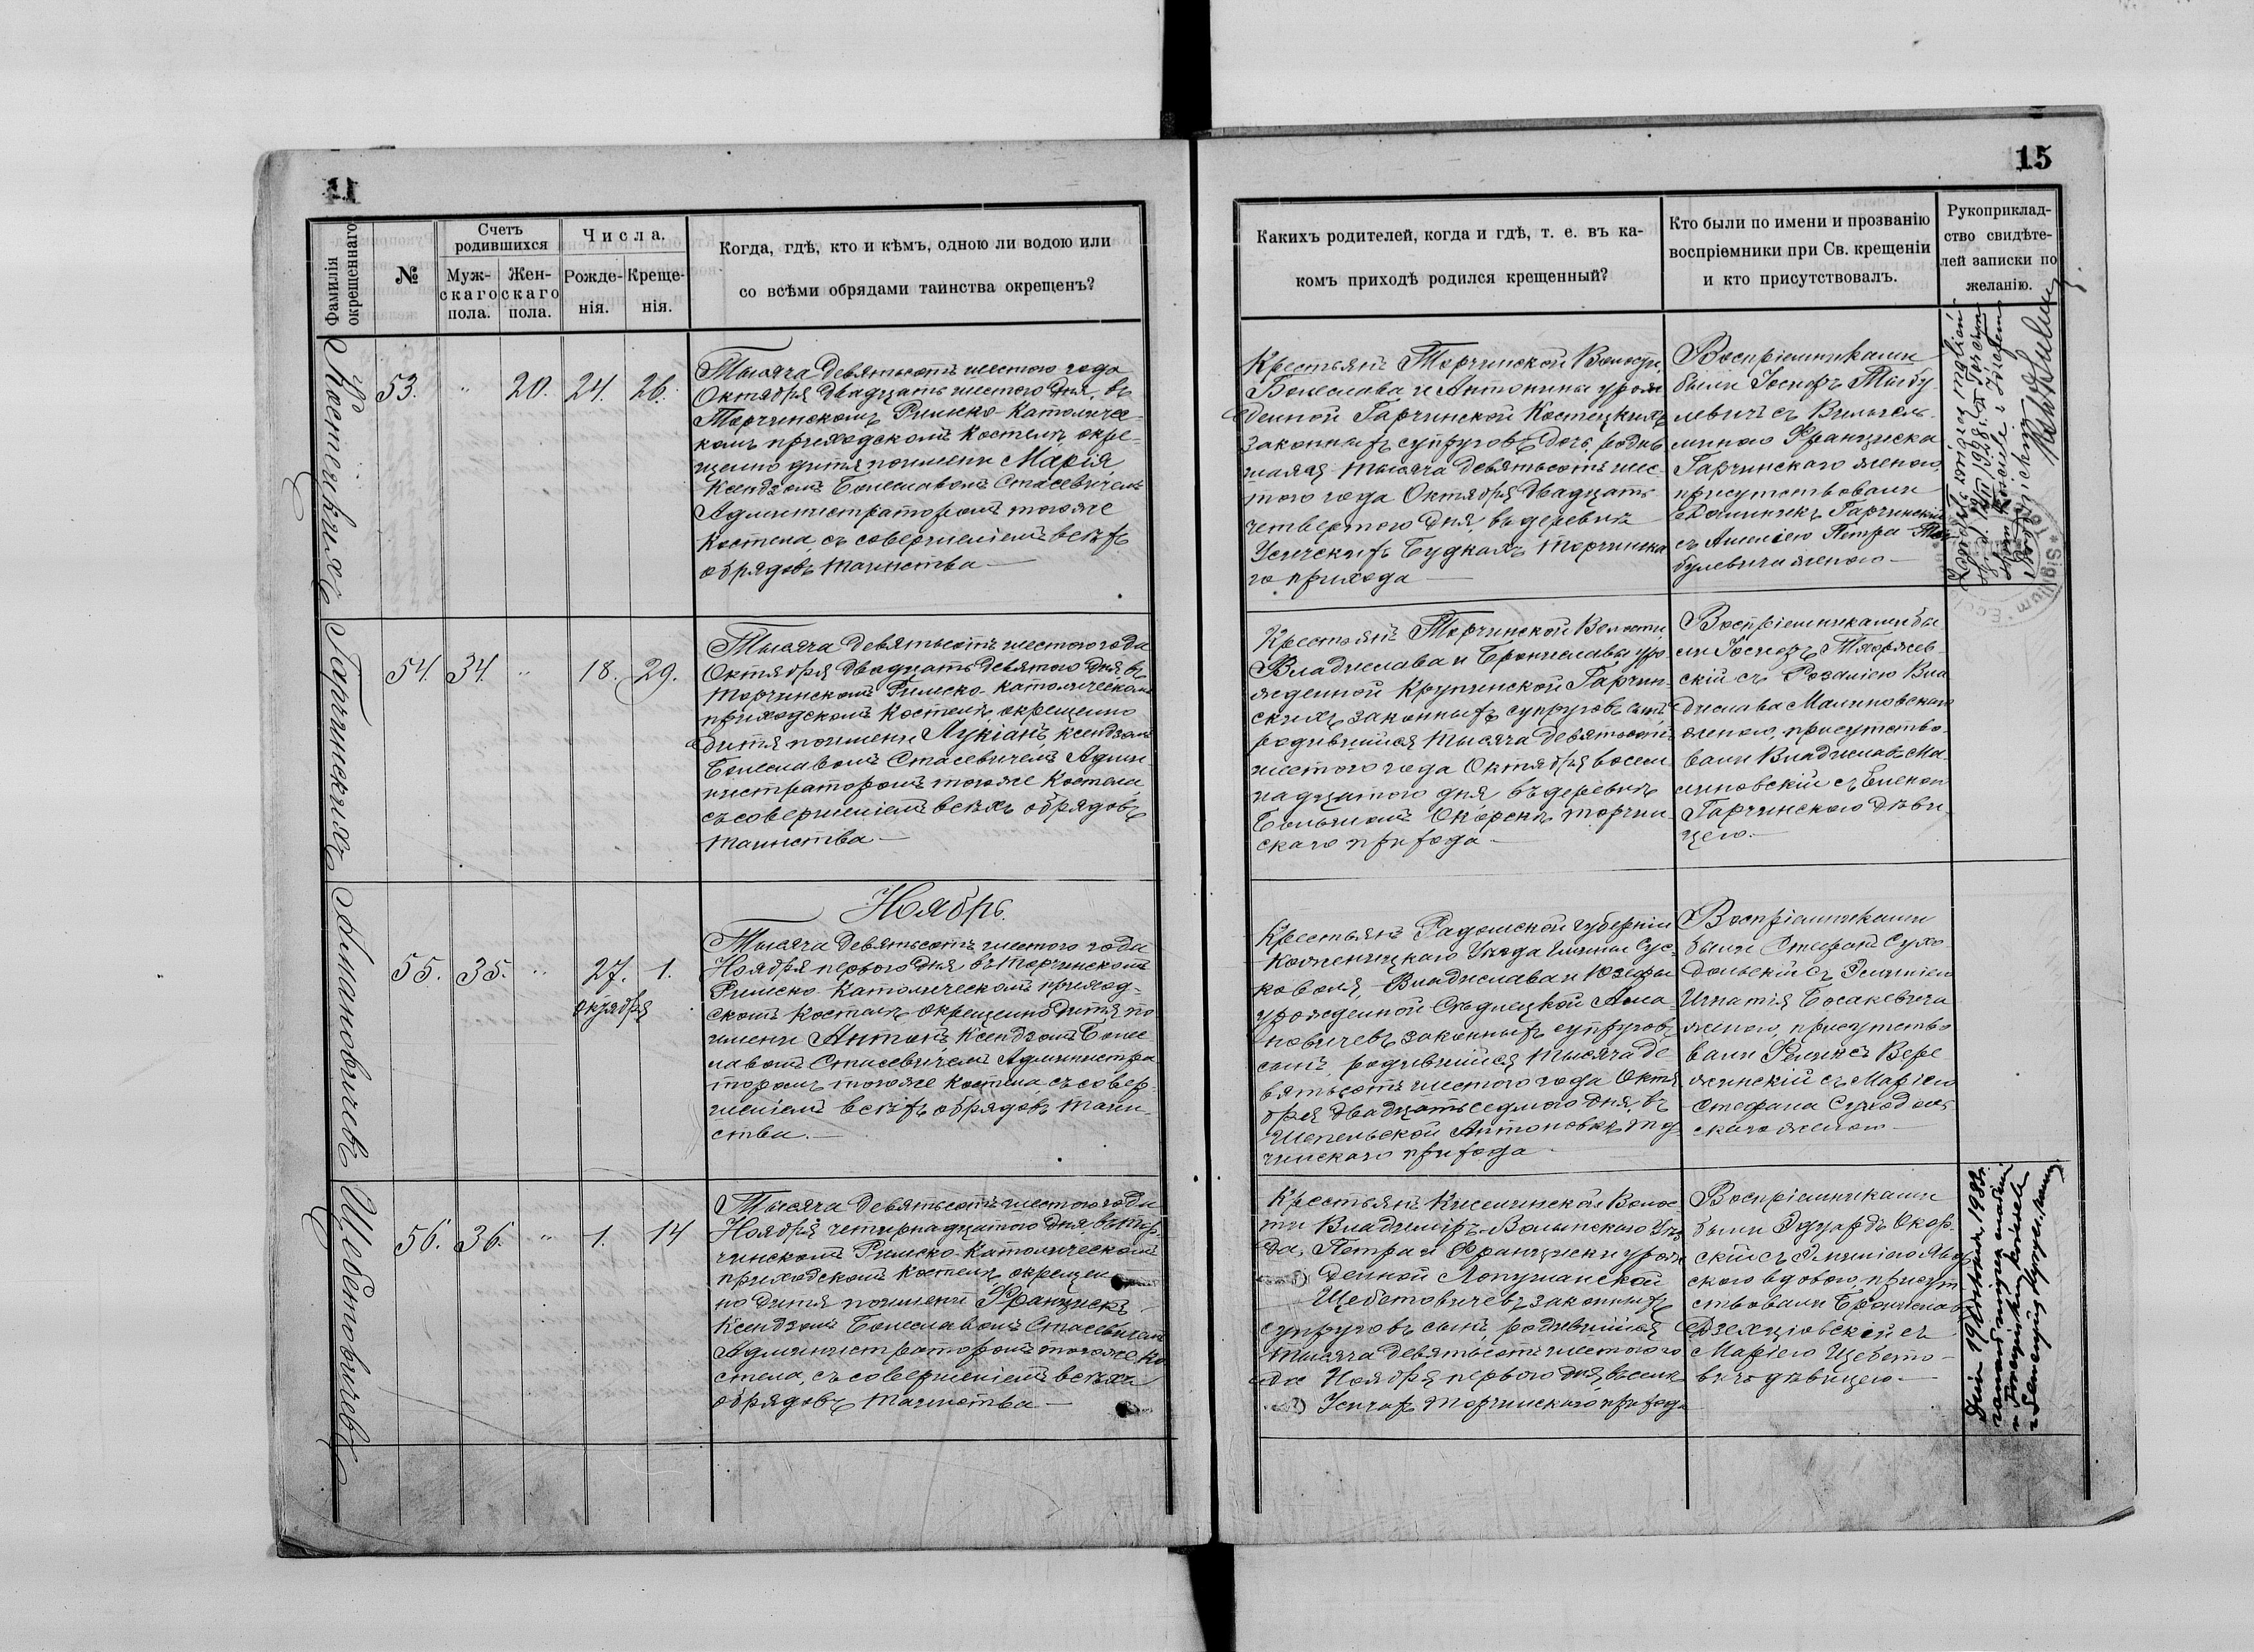 11
Фамилія
окрещеннаго
№
Счетъ
родившихся
Муж-
скаго
пола.
Жен-
скаго
пола.
Числа.
Рожде-
нія.
Креще-
нія.
Когда, гдѣ, кто и кѣмъ, одною ли водою или
со всѣми обрядами таинства окрещенъ?
Костецкихъ
53.
"
20.
24.
26.
Тысяча девятьсотъ шестого года
Октября двадцать шестого дня, въ
Торчинскомъ Римско-Католичес-
комъ приходскомъ Костелѣ окре-
щено дитя по имени Марія,
Ксендзомъ Болеславомъ Стасевичемъ
Администраторомъ тогоже
Костела, съ совершеніемъ всѣхъ
обрядовъ таинства —
Гарчинскихъ
54.
34.
"
18.
29.
Тысяча девятьсотъ шестого года
Октября двадцать девятого дня въ
Торчинскомъ Римско-Католическомъ
приходскомъ Костелѣ окрещено
дитя по имени Лукіанъ, ксендзомъ
Болеславомъ Стасевичемъ Адми-
нистраторомъ тогоже Костела,
съ совершеніемъ всѣхъ обрядовъ
таинства —
Ноябрь.
Амановичевъ
55.
35.
"
27.
октября
1.
Тысяча девятьсотъ шестого года
Ноября первого дня въ Торчинскомъ
Римско-Католическомъ приход-
скомъ Костелѣ окрещено дитя по
имени Антонъ, Ксендзомъ Боле-
славомъ Стасевичемъ Администра-
торомъ тогоже Костела съ совер-
шеніемъ всѣхъ обрядовъ таин-
ства. —
Щебетовичевъ
56.
36.
"
1.
14
Тысяча девятьсотъ шестого года
Ноября четырнадцатого дня, въ Тор-
чинскомъ Римско-Католическомъ
приходскомъ Костелѣ окреще-
но дитя по имени Францискъ
Ксендзомъ Болеславомъ Стасевичемъ
Администраторомъ тогоже Ко-
стела, съ совершеніемъ всѣхъ
обрядовъ таинства —
15
Какихъ родителей, когда и гдѣ, т. е. въ ка-
комъ приходѣ родился крещенный?
Кто были по имени и прозванію
воспріемники при Св. крещеніи
и кто присутствовалъ.
Рукоприклад-
ство свидѣте-
лей записки по
желанію.
Крестьянъ Торчинской Волости,
Болеслава и Антонины урож-
денной Гарчинской Костецкихъ
законныхъ супруговъ дочь, родив-
шаяся тысяча девятьсотъ шес-
того года Октября двадцать
четвертого дня, въ деревнѣ
Усичскихъ Будкахъ Торчинска-
го прихода —
Воспріемниками
были Іосифъ
съ
Франциска
Гарчинскаго женою,
присутствовали
Гарчинскій
съ Петра
женою —
Крестьянъ Торчинской Волости,
Владислава и Брониславы уро-
жденной Крупинской Гарчин-
скихъ законныхъ супруговъ сынъ,
родившійся тысяча девятьсотъ
шестого года Октября восем-
надцатого дня въ деревнѣ
Большомъ Торчин-
скаго прихода —
Воспріемниками бы-
ли Іосифъ
скій съ Розаліею Вла-
дислава Малиновскаго
женою, присутство-
вали Владиславъ Ма-
линовскій съ Еленой
Гарчинскою дѣви-
цею. —
Крестьянъ Радомской губерніи
Козѣницкаго Уѣзда гмины Сус-
коволя, Владислава и Юзефы
урожденной Сѣдлецкой Ама-
новичевъ законныхъ супруговъ
сынъ, родившійся тысяча де-
вятьсотъ шестого года Октя-
бря двадцать седмого дня, въ
Шепельской Антоновкѣ Тор-
чинскаго прихода —
Воспріемниками
были Стефанъ Сухо-
дольскій съ Эмиліею
Игнатія Босакевича
женою, присутство-
вали Вере-
жинскій съ Маріею
Стефана Суходоль-
скаго женою —
Крестьянъ Киселинской Волос-
ти Владиміръ-Волынскаго Уѣз-
да, Петра и Франциски урож-
денной Лопушанской
Щебетовичевъ законныхъ
супруговъ сынъ, родившійся
тысяча девятьсотъ шестого го-
да Ноября первого дня, въ селѣ
Усичахъ Торчинскаго прихода
Воспріемниками
были Эдуардъ Скор-
скій съ Эмиліею
вдовою, присут-
ствовали Брониславъ
съ
Маріею Щебето-
вичъ дѣвицею. —
Sigillum